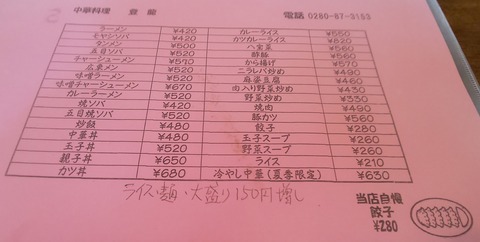 中華料理 電話 0280-87-3153
ラーメン ¥420 カレーライス ¥550
モヤシソバ ¥420 カツカレーライス ¥820
タンメン ¥500 八宝菜 ¥560
五目ソバ ¥520 酢豚 ¥560
チャーシューメン から揚げ ¥570
広東メン ¥520 ニラレバ炒め ¥490
味噌ラーメン ¥520 麻婆豆腐 ¥460
味噌チャーシューメン ¥670 肉入り野菜炒め ¥430
カレーラーメン ¥520 野菜炒め ¥330
焼ソバ ¥420 焼肉 ¥490
五目焼ソバ ¥520 豚カツ ¥560
炒飯 ¥480 餃子 ¥280
中華丼 ¥480 玉子スープ ¥260
玉子丼 ¥520 野菜スープ ¥260
親子丼 ¥650 ライス ¥210
カツ丼 ¥680 冷やし中華(夏季限定) ¥630
ライス・麺・大盛り150円増し
当店自慢
餃子
¥280